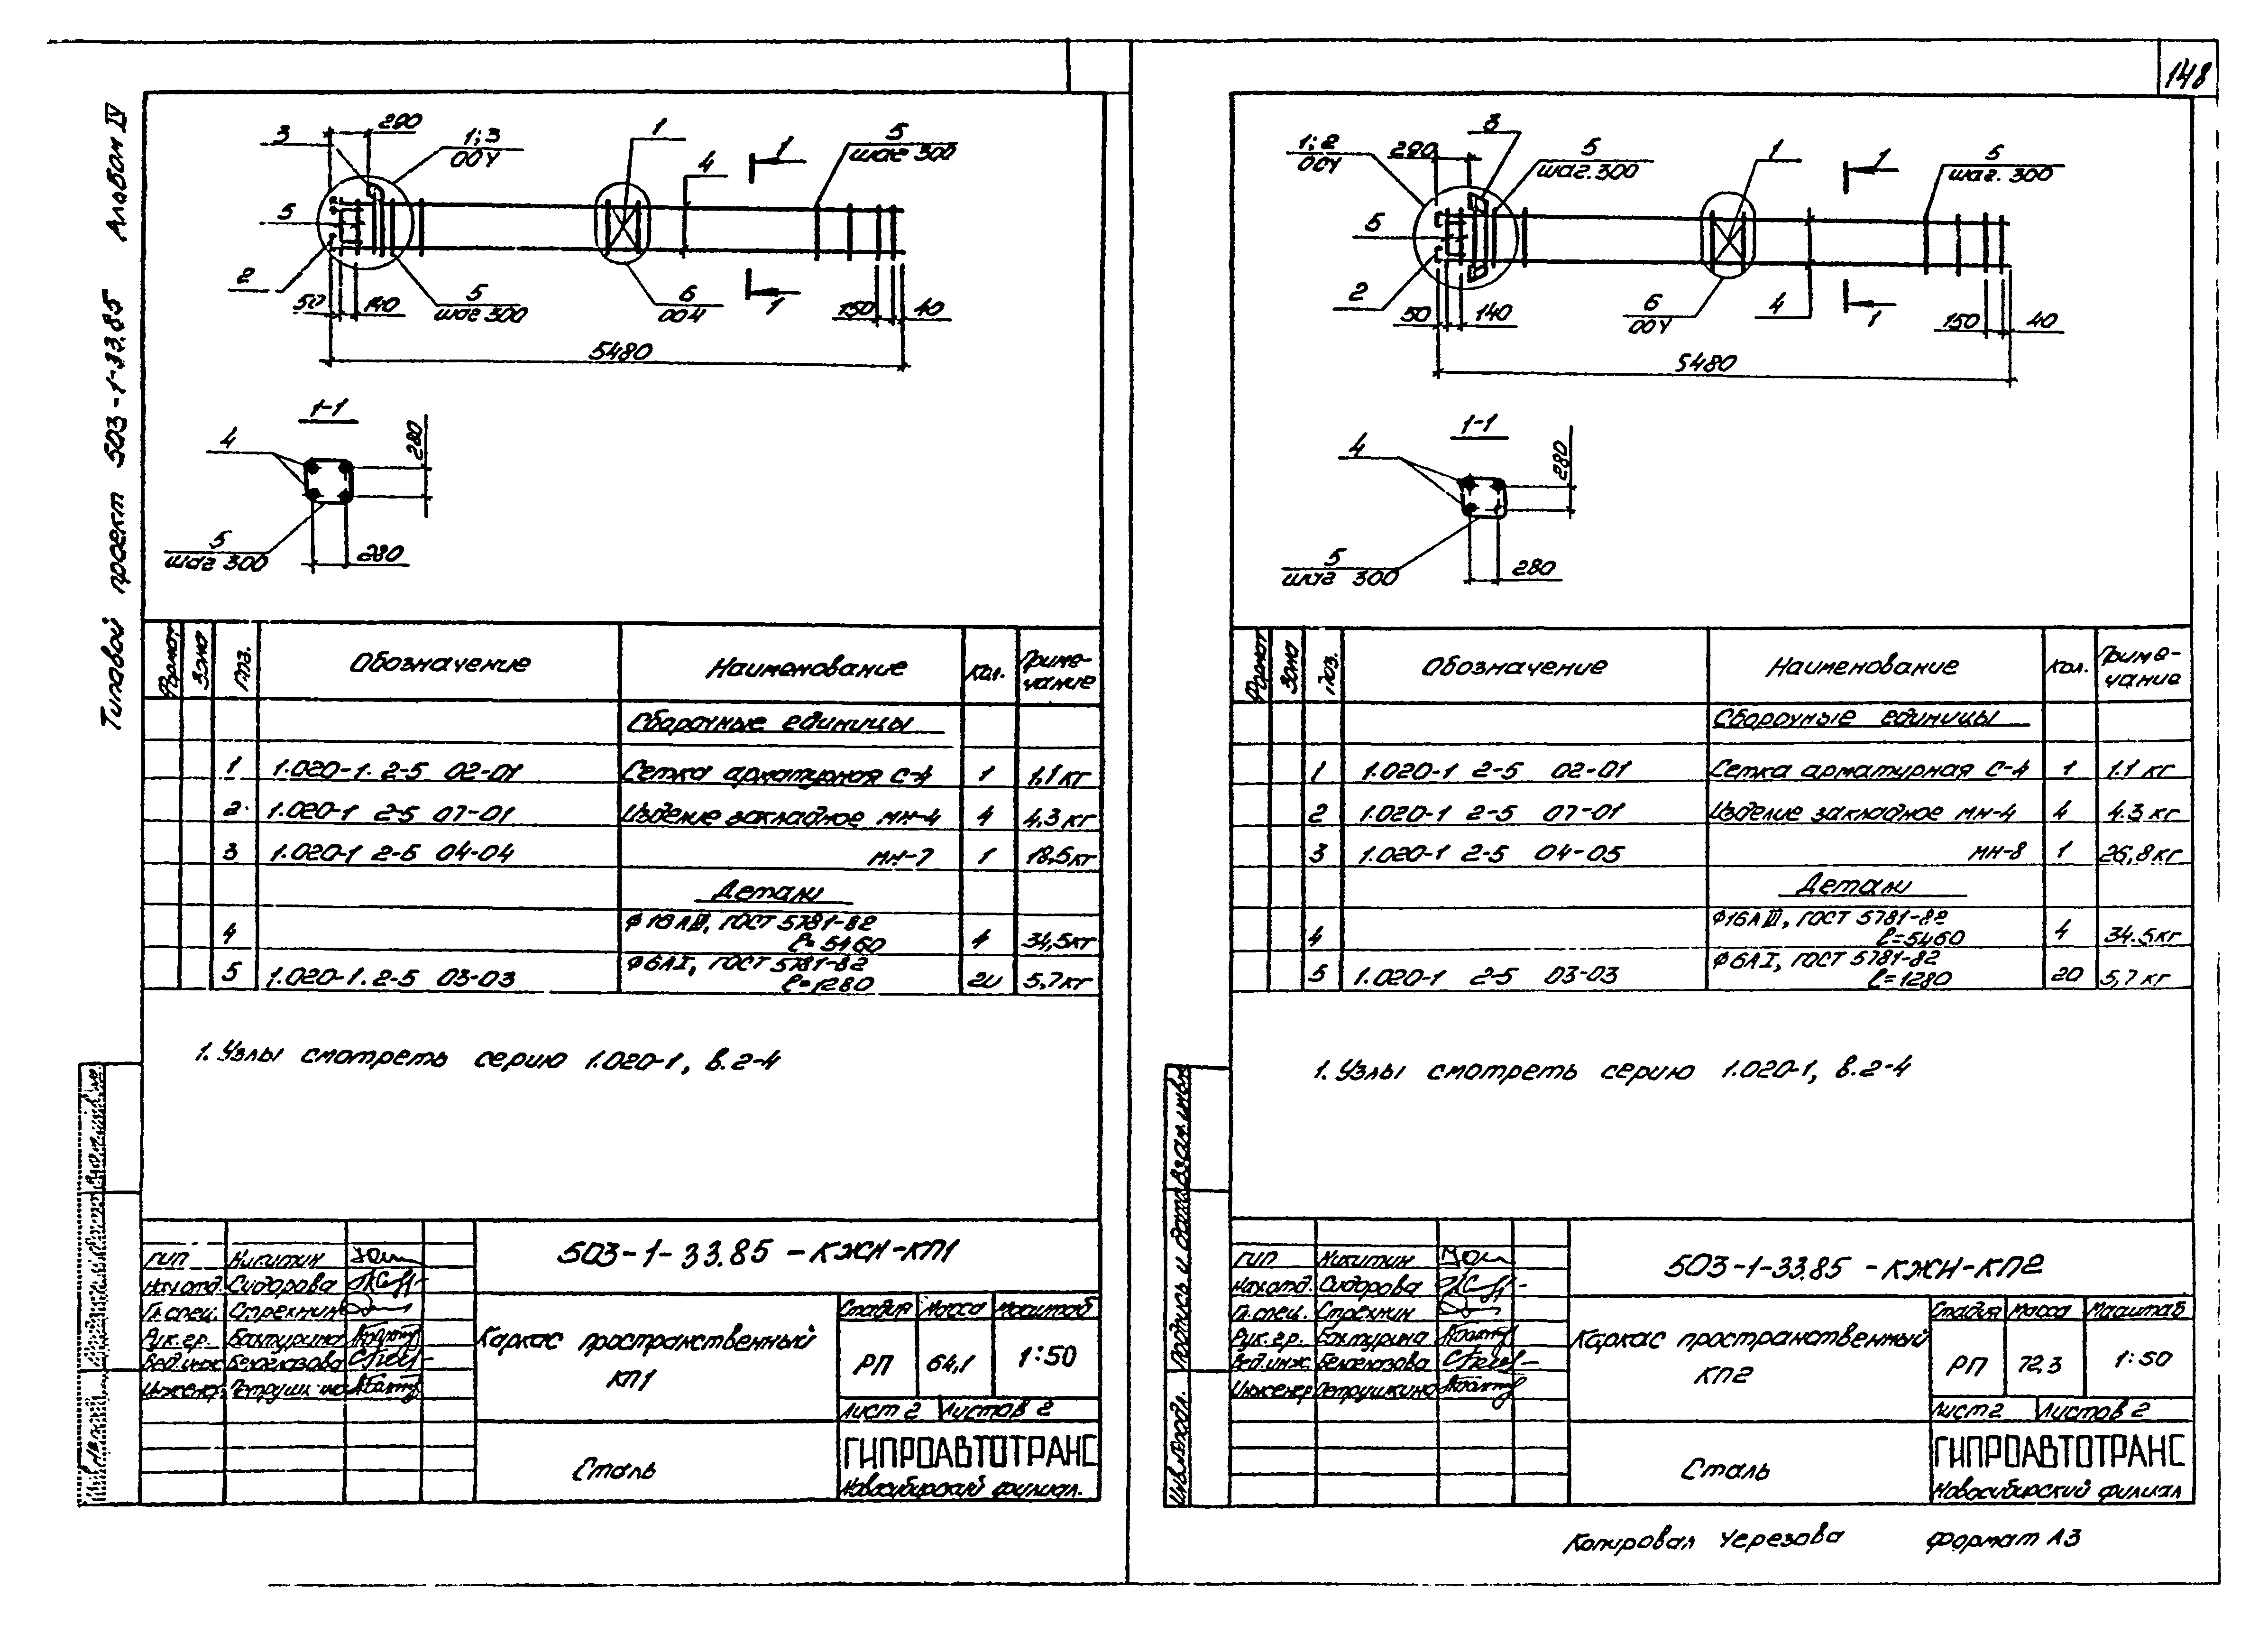 148
Типовой проект 503-1-33.85 Альбом IV
3
280
1; 3
004
1
4
1
5
шаг 300
5
2
50
140
5
шаг 300
6
004
1
150
40
5480
1-1
4
280
5
шаг 300
280
Формат
Зона
Поз.
Обозначение
Наименование
Кол.
Приме-
чание
Сборочные единицы
1 1.020-1. 2-5 02-01 Сетка арматурная С-4 1 1,1 кг
2 1.020-1 2-5 07-01 Изделие закладное МН-4 4 4,3 кг
3 1.020-1 2-5 04-04 МН-7 1 18,5кг
Детали
4 ф16АIII, ГОСТ 5781-82
ℓ=5460 4 34,5кг
5 1.020-1. 2-5 03-03 ф6АI, ГОСТ 5781-82
ℓ=1280 20 5,7кг
1. Узлы смотреть серию 1.020-1, в.2-4
503-1-33.85 -КЖН-КП1
ГИП Никитин
Нач.отд. Сидорова
Гл.спец. Стрехнин
Рук.гр. Бахтурина
Вед.инж. Белоглазова
Инженер Петрушкина
Каркас пространственный
КП1
Стадия Масса Масштаб
РП 64,1 1:50
Лист 2 Листов 2
Сталь
ГИПРОАВТОТРАНС
Новосибирский филиал.
1; 2
004
280
3
5
шаг.300
1
1
5
шаг. 300
5
2
50
140
6
004
4
1
150
40
5480
1-1
4
280
5
шаг 300
280
Формат
Зона
Поз.
Обозначение
Наименование
Кол.
Приме-
чание
Сборочные единицы
1 1.020-1 2-5 02-01 Сетка арматурная С-4 1 1.1 кг
2 1.020-1 2-5 07-01 Изделие закладное МН-4 4 4.3 кг
3 1.020-1 2-5 04-05 МН-8 1 26,8кг
Детали
4 ф16АIII, ГОСТ 5781-82
ℓ=5460 4 34.5кг
5 1.020-1 2-5 03-03 ф6АI, ГОСТ 5781-82
ℓ=1280 20 5,7 кг
1. Узлы смотреть серию 1.020-1, в.2-4
Инв.№подл. Подпись и дата Взам.инв.№
503-1-33.85 -КЖН-КП2
ГИП Никитин
Нач.отд. Сидорова
Гл.спец. Стрехнин
Рук.гр. Бахтурина
Вед.инж. Белоглазова
Инженер Петрушкина
Каркас пространственный
КП2
Стадия Масса Масштаб
РП 72,3 1:50
Лист 2 Листов 2
Сталь
ГИПРОАВТОТРАНС
Новосибирский филиал
Копировал Черезова Формат А3